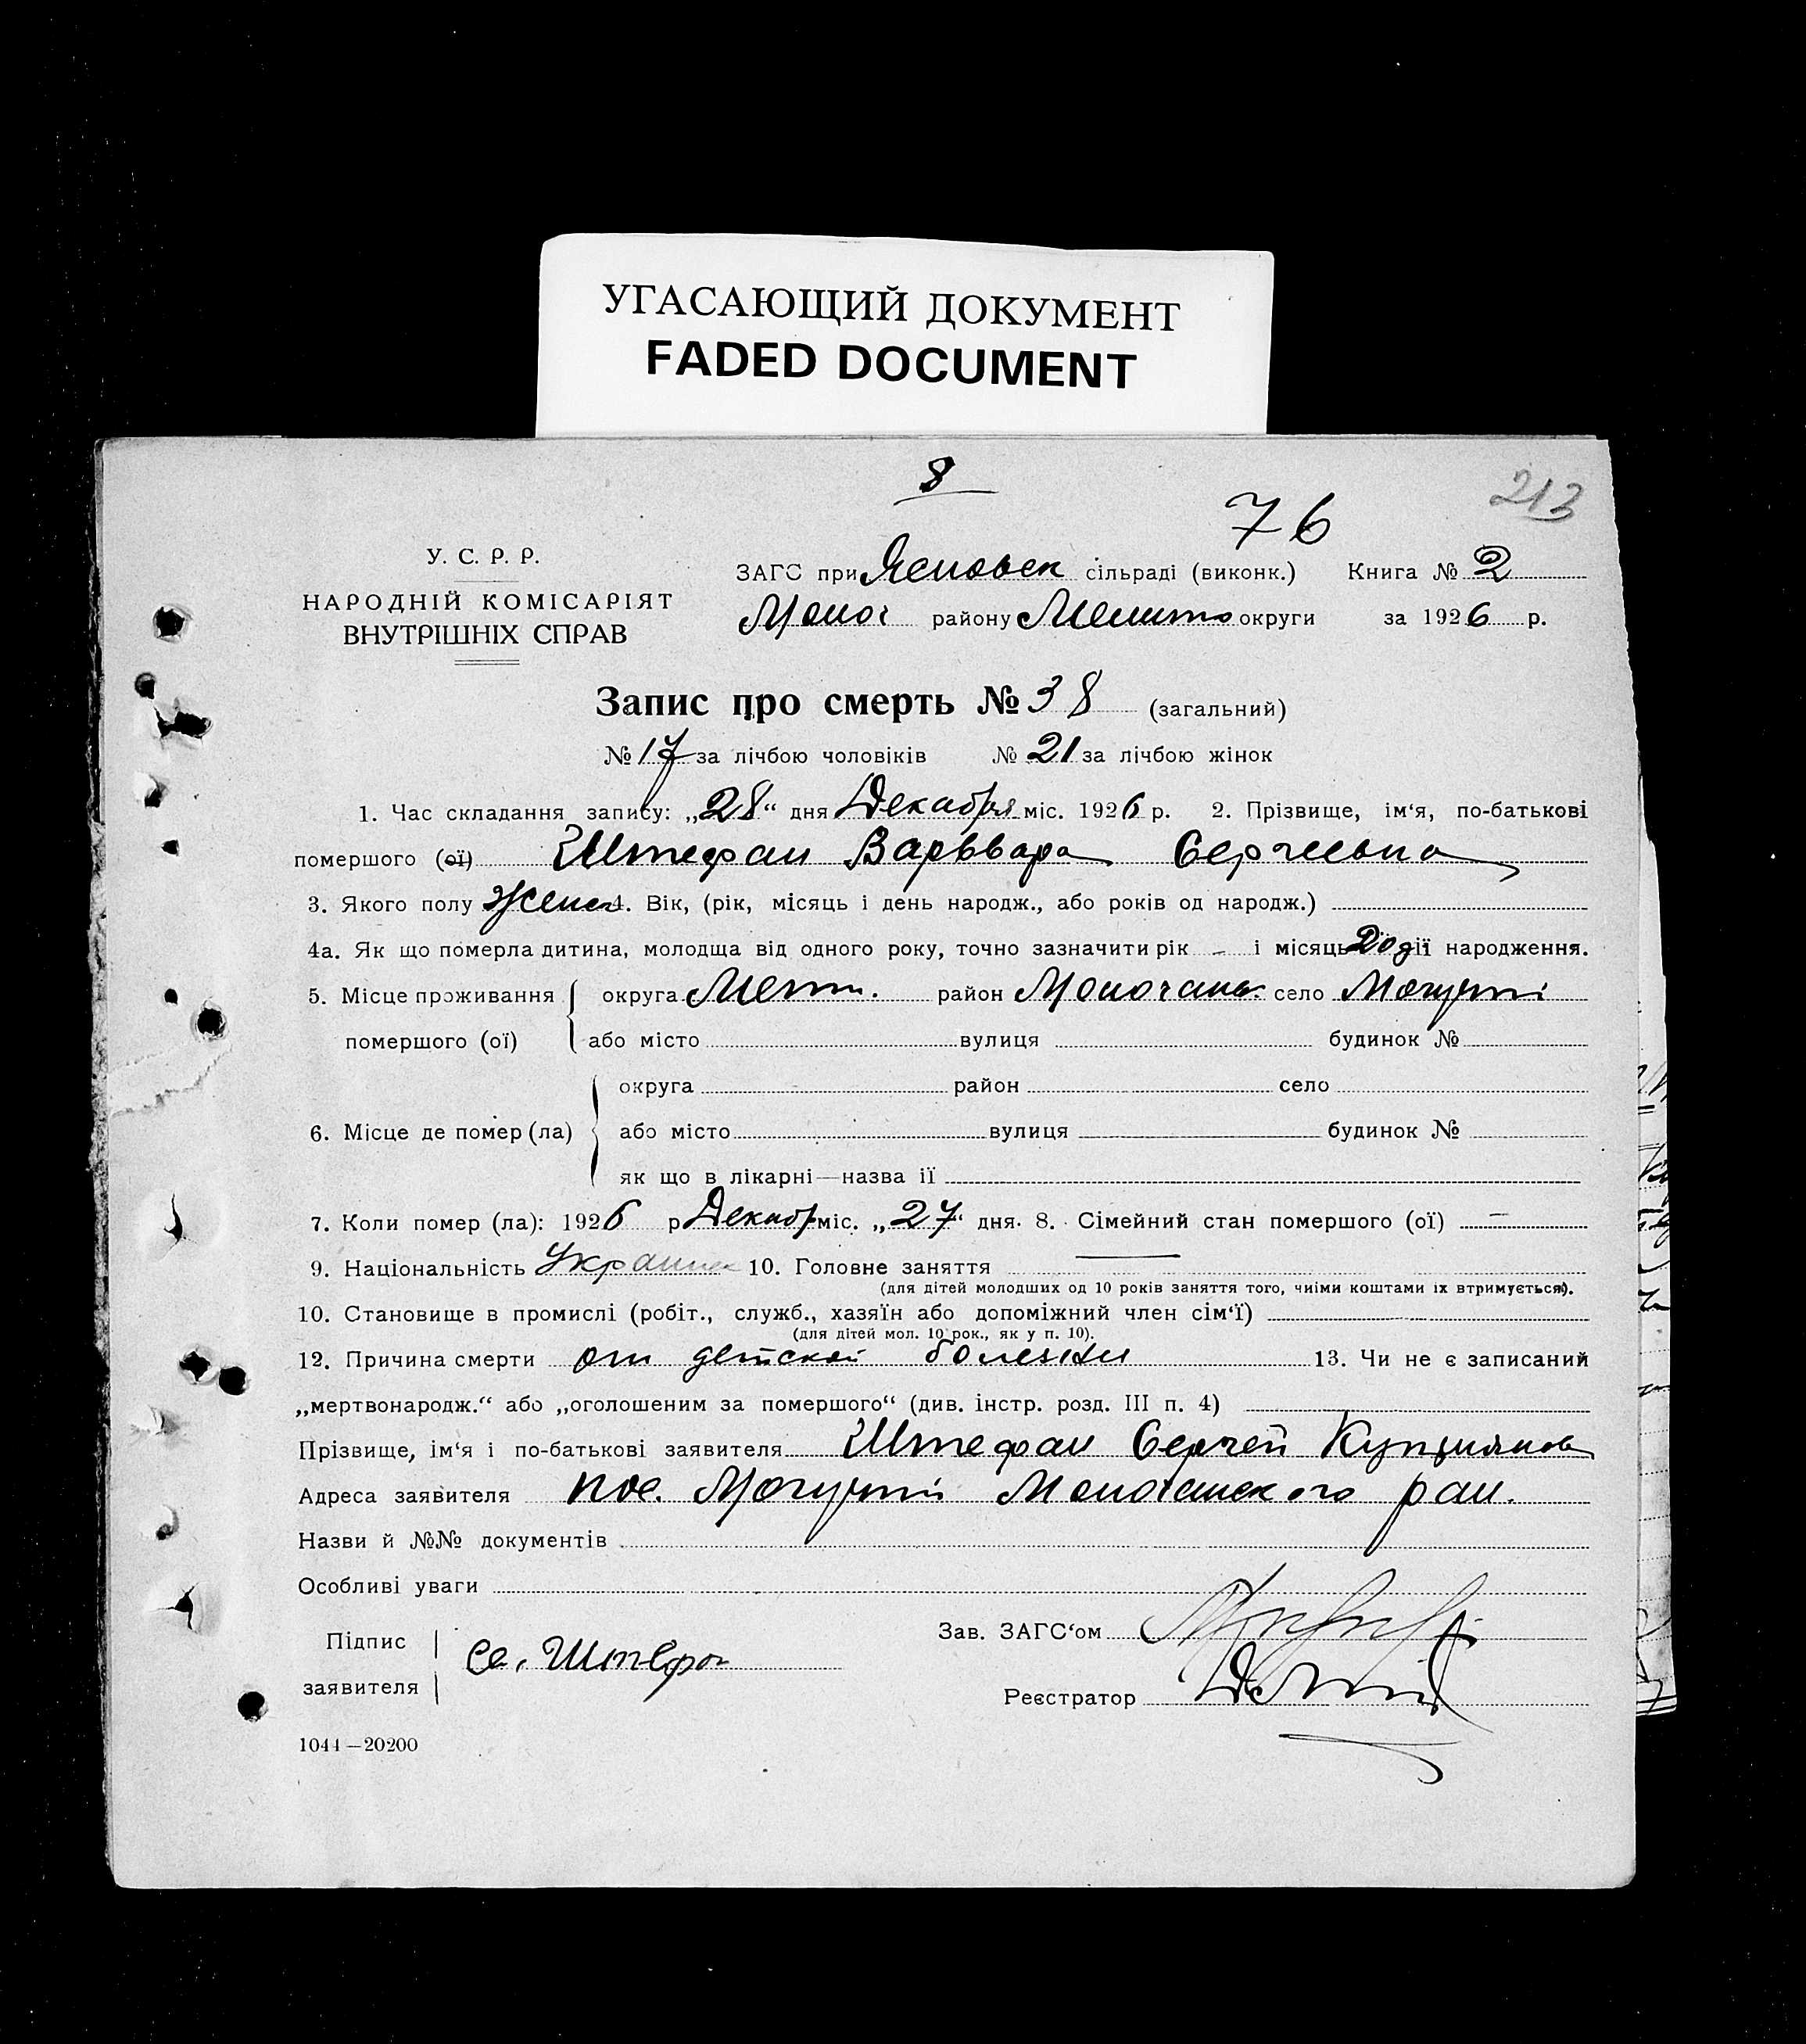 УГАСАЮЩИЙ ДОКУМЕНТ
FADED DOCUMENT
8
76
213
У. С. Р. Р.
НАРОДНІЙ КОМІСАРІЯТ
ВНУТРІШНІХ СПРАВ
ЗАГС при сільраді (виконк.) Книга № 2
району округи за 1926 р.
Запис про смерть № 38 (загальний)
№ 17 за лічбою чоловіків № 21 за лічбою жінок
1. Час складання запису: „28“ дня Декабря міс. 1926 р. 2. Прізвище, ім‘я, по-батькові
помершого (ої) Штефан Варввара Сергеевна
3. Якого полу женск 4. Вік, (рік, місяць і день народж., або років од народж.)
4а. Як що померла дитина, молодща від одного року, точно зазначити рік – і місяць народження.
5. Місце проживання округа Мелит. район село Могучий
помершого (ої) або місто вулиця будинок №
округа район село
6. Місце де помер (ла) або місто вулиця будинок №
як що в лікарні—назва її
7. Коли помер (ла): 1926 р Декабр міс. „27“ дня. 8. Сімейний стан помершого (ої) —
9. Національність Украинец 10. Головне заняття —
(для дітей молодших од 10 років заняття того, чиїми коштами їх втримується).
10. Становище в промислі (робіт., служб., хазяїн або допоміжний член сім‘ї)
(для дітей мол. 10 рок., як у п. 10).
12. Причина смерти от детской болезни 13. Чи не є записаний
„мертвонародж.“ або „оголошеним за помершого“ (див. інстр. розд. III п. 4)
Прізвище, ім‘я і по-батькові заявителя Штефан Сергей Куприянов
Адреса заявителя пос. Могучий рай.
Назви й №№ документів
Особливі уваги
Підпис
заявителя
Се. Штефан
Зав. ЗАГС‘ом
Реєстратор
1044—20200